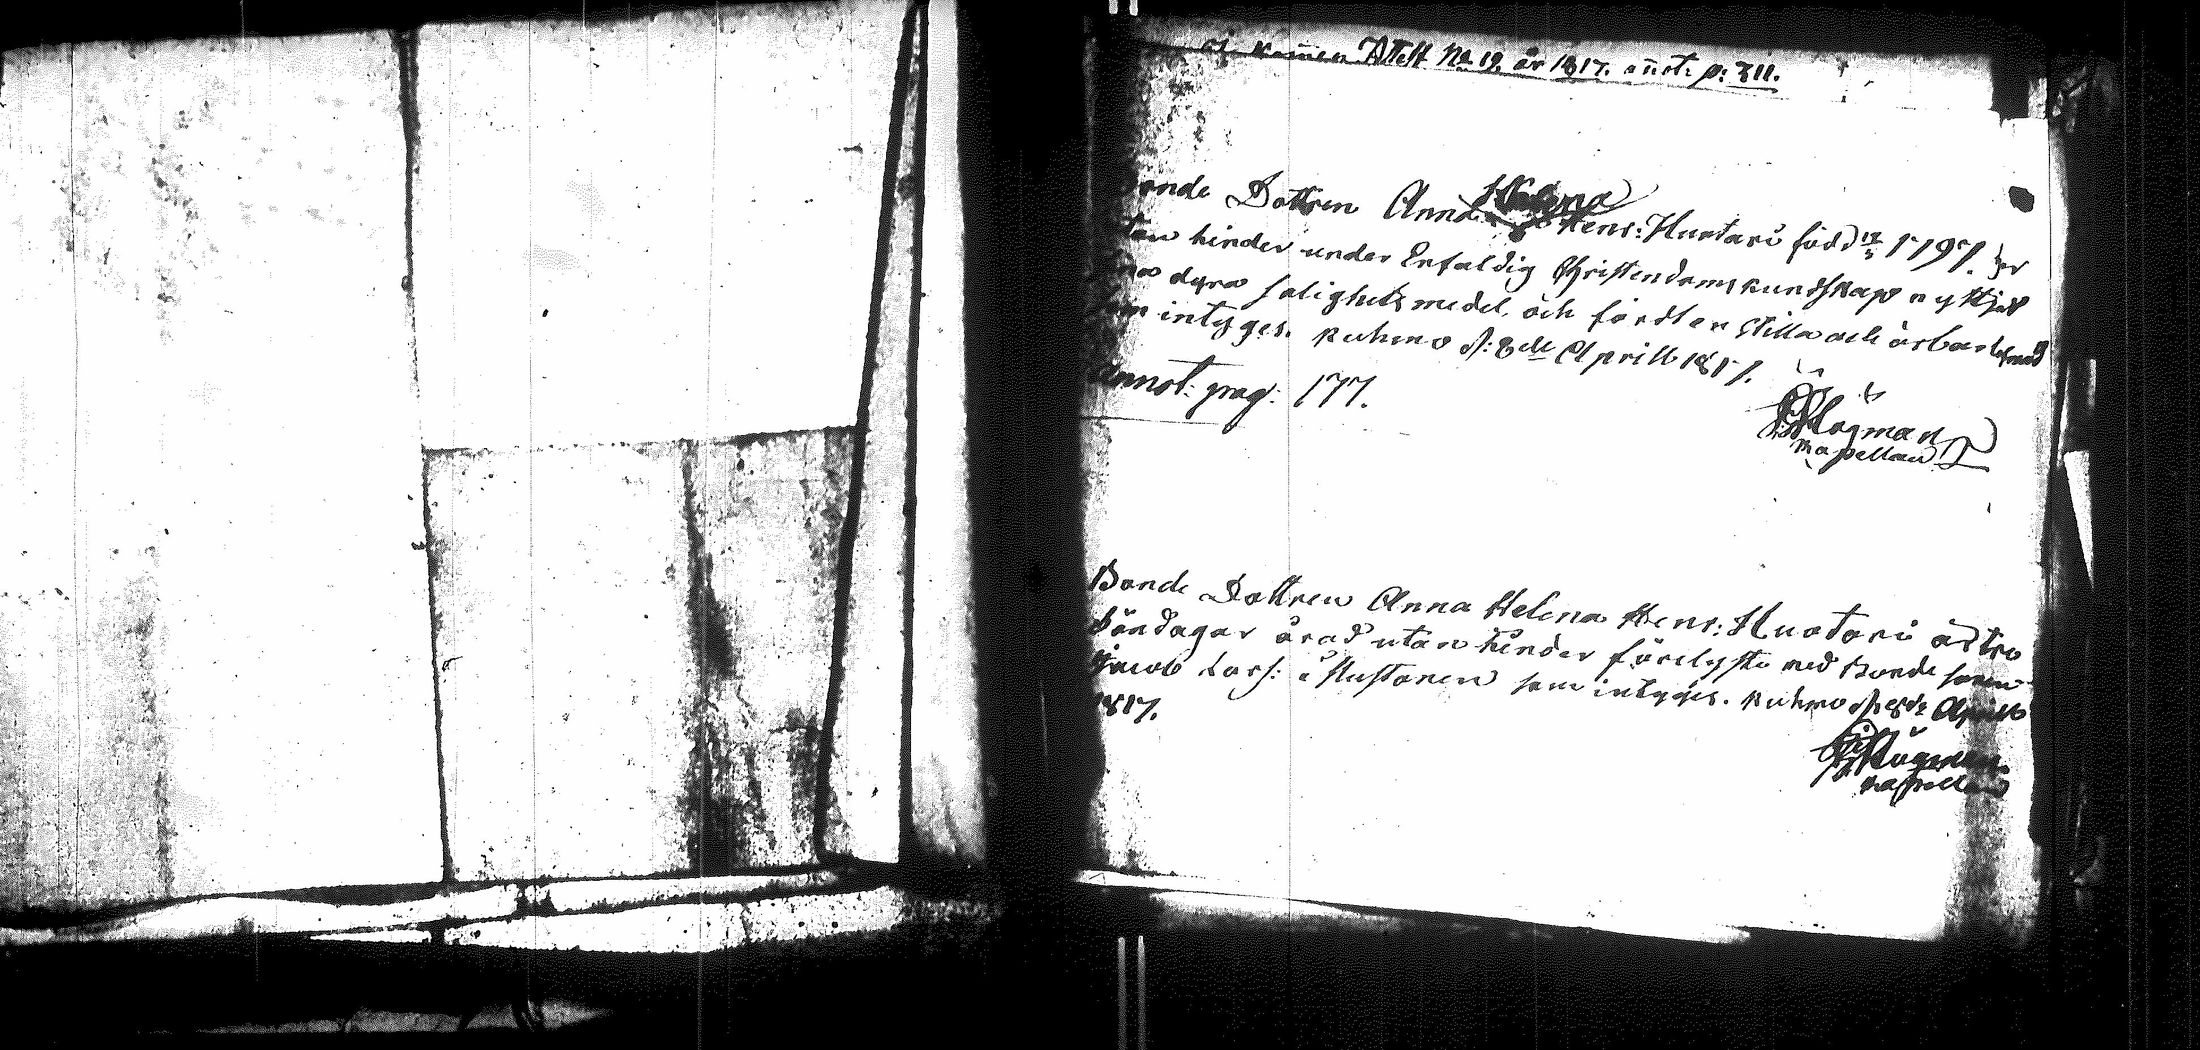 kom̄en Attest No 19. år 1817. an̄ot: p: 311.
Bonde Dottren Anna Helena Henr: Huotari född 17 1797. har
utan hinder under Enfaldig Christendoms kundskap nyttjat
dyra salighets medel, och fördt en stilla och ärbar lefnad
som intyges. Kuhmo d: 8de Aprill 1817.
Annot: pag: 177.
Högman
Kapellan
Bonde Dottren Anna Helena Henr: Huotari är tre
Söndagar å rad utan hinder förelyste med Bonde sonen
Jacob Lars: Mustonen som intyges. Kuhmo d: 8de Aprill
1817.
Högman
Kapellan